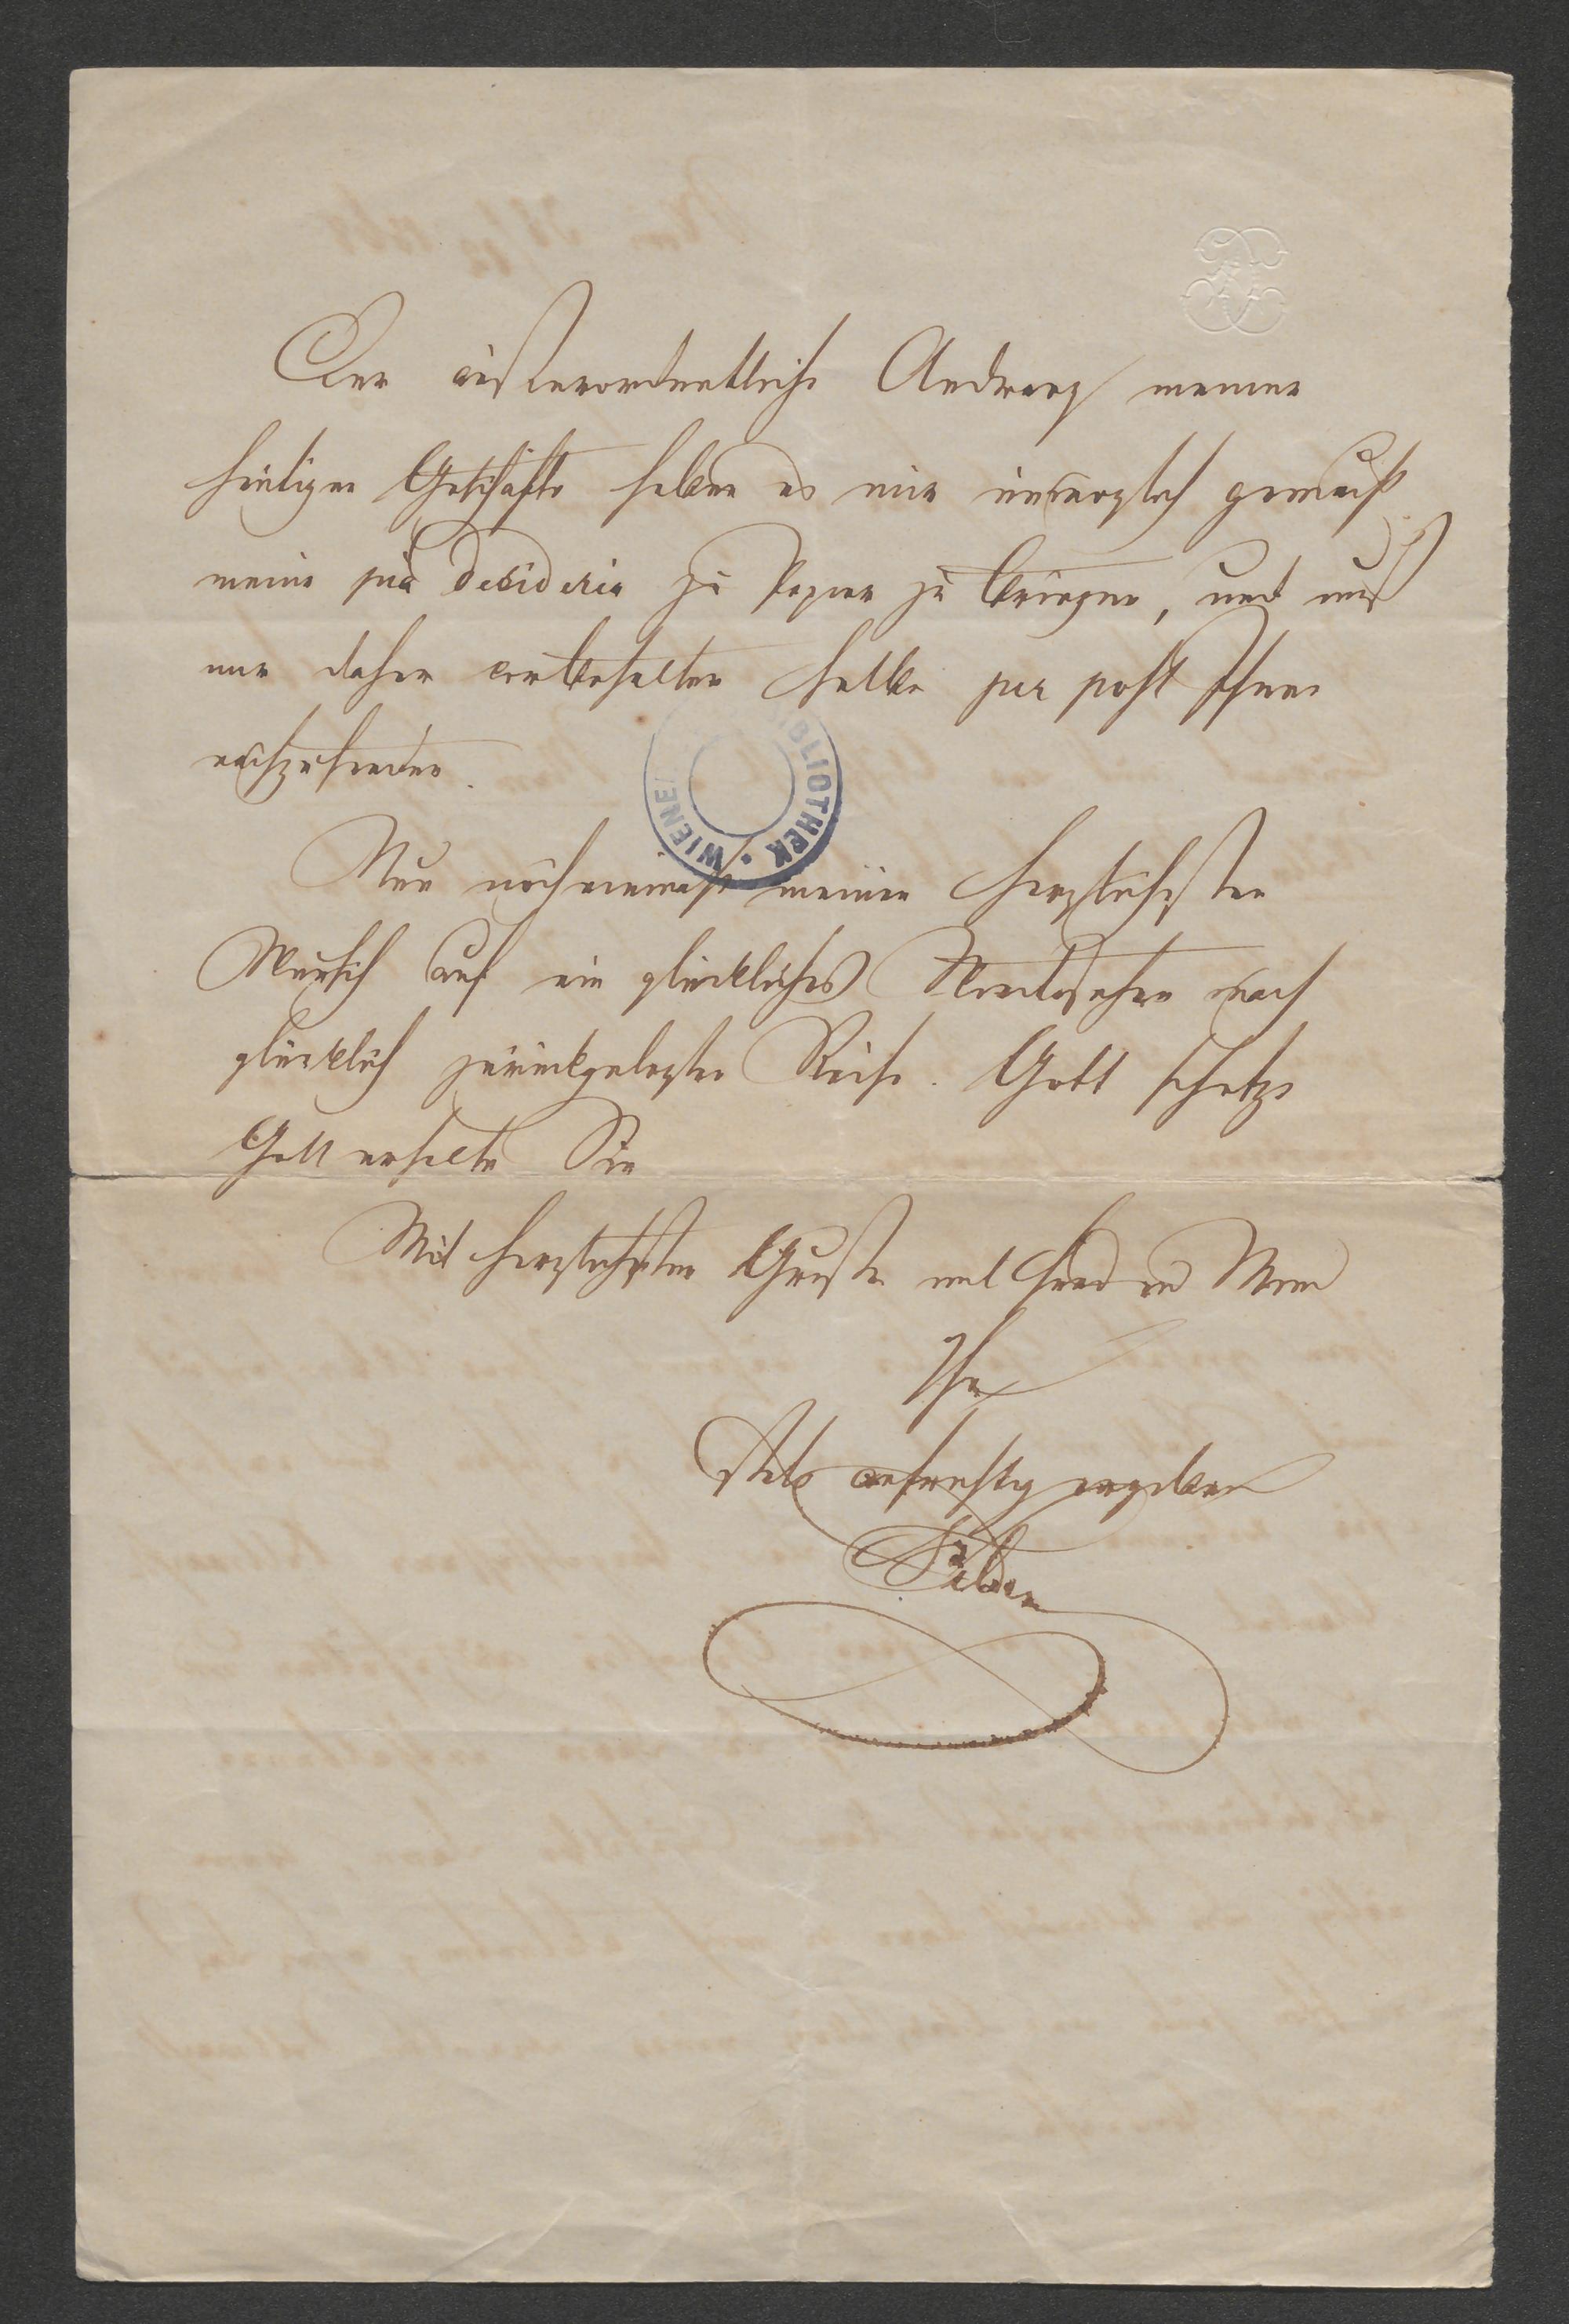 Der außerordentliche Andrang meiner
heutigen Geschäfte haben es mir unmöglich gemacht
meine pia desideria zu Papier zu bringen, und muß
mir daher vorbehalten selbe per post Ihnen
nachzusenden.
Nun nocheinmahl meinen herzlichsten
Wunsch auf ein glückliches Wiedersehen nach
glücklich zurückgelegter Reise. Gott schütze
Gott erhalte Sie
Mit herzlichsten Gruße und
Ihr
stets aufrichtig ergebener
WIENER BIBLIOTHEK